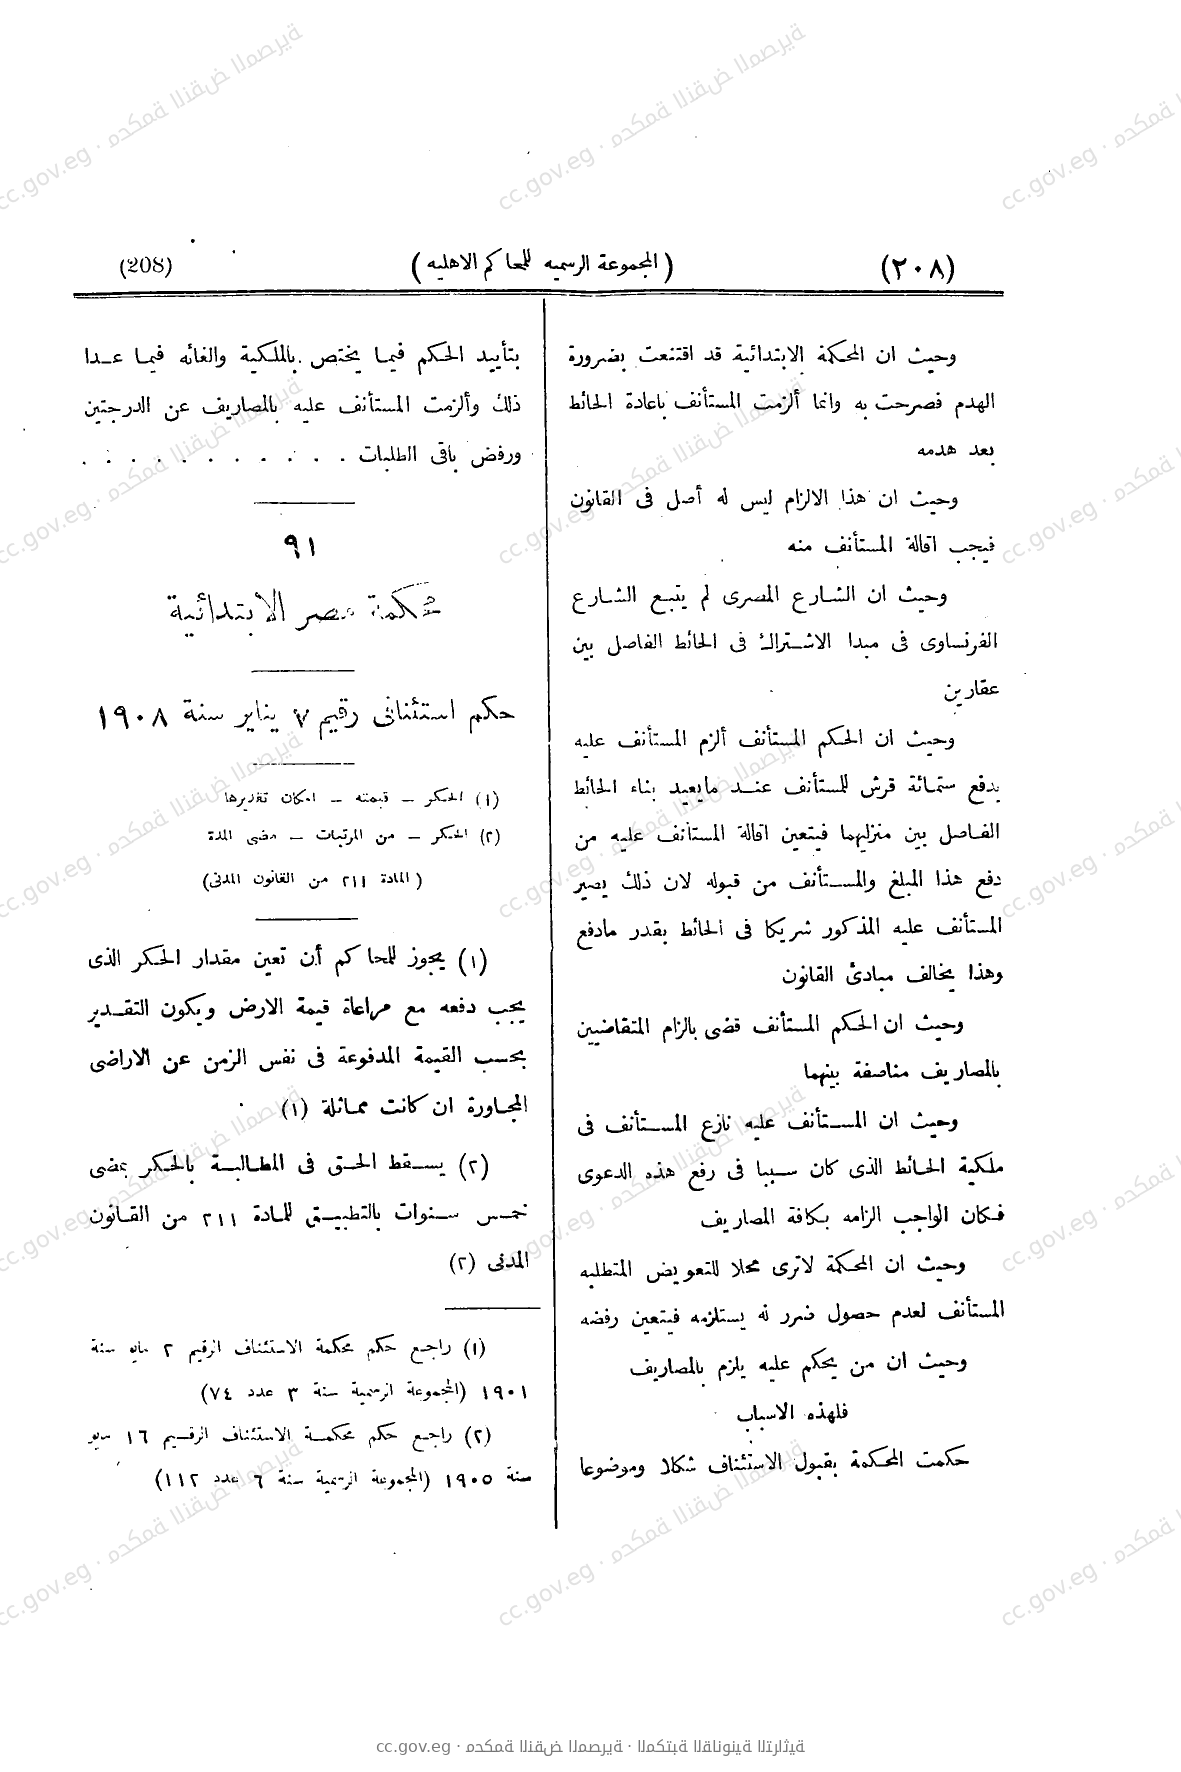 (٢٠٨)
(المجموعة الرسميه للمحاكم الاهليه)
(208)
وحيث ان المحكمة الابتدائية قد اقتنعت بضرورة
الهدم فصرحت به وانما ألزمت المستأنف باعادة الحائط
بعد هدمه
وحيث ان هذا الالزام ليس له أصل فى القانون
فيجب اقالة المستأنف منه
وحيث ان الشارع المصرى لم يتبع الشارع
الفرنساوى فى مبدا الاشتراك فى الحائط الفاصل بين
عقارين
وحيث ان الحكم المستأنف ألزم المستأنف عليه
بدفع ستمائة قرش للمستأنف عند مايعيد بناء الحائط
الفاصل بين منزليهما فيتعين اقالة المستأنف عليه من
دفع هذا المبلغ والمستأنف من قبوله لان ذلك يصير
المستأنف عليه المذكور شريكا فى الحائط بقدر مادفع
وهذا يخالف مبادئ القانون
وحيث ان الحكم المستأنف قضى بالزام المتقاضيين
بالمصاريف مناصفة بينهما
وحيث ان المستأنف عليه نازع المستأنف فى
ملكية الحائط الذى كان سببا فى رفع هذه الدعوى
فكان الواجب الزامه بكافة المصاريف
وحيث ان المحكمة لاترى محلا للتعويض المتطلبه
المستأنف لعدم حصول ضرر له يستلزمه فيتعين رفضه
وحيث ان من يحكم عليه يلزم بالمصاريف
فلهذه الاسباب
حكمت المحكمة بقبول الاستئناف شكلا وموضوعا
بتأييد الحكم فيما يختص بالملكية والغائه فيما عدا
ذلك وألزمت المستأنف عليه بالمصاريف عن الدرجتين
ورفض باقى الطلبات . . . . . . . . . . .
٩١
محكمة مصر الابتدائية
حكم استئنافى رقيم ٧ يناير سنة ١٩٠٨
(١) الحكر – قيمته – امكان تقديرها
(٢) الحكر – من المرتبات – مضى المدة
(المادة ٢١١ من القانون المدنى)
(١) يجوز للمحاكم أن تعين مقدار الحكر الذى
يجب دفعه مع مراعاة قيمة الارض ويكون التقدير
بحسب القيمة المدفوعة فى نفس الزمن عن الاراضى
المجاورة ان كانت مماثلة (١)
(٢) يسقط الحق فى المطالبة بالحكر بمضى
خمس سنوات بالتطبيق للمادة ٢١١ من القانون
المدنى (٢)
(١) راجع حكم محكمة الاستئناف الرقيم ٢ مايو سنة
١٩٠١ (المجموعة الرسمية سنة ٣ عدد ٧٤)
(٢) راجع حكم محكمة الاستئناف الرقيم ١٦ مايو
سنة ١٩٠٥ (المجموعة الرسمية سنة ٦ عدد ١١٢)
cc.gov.eg · محكمة النقض المصرية · المكتبة القانونية التراثية